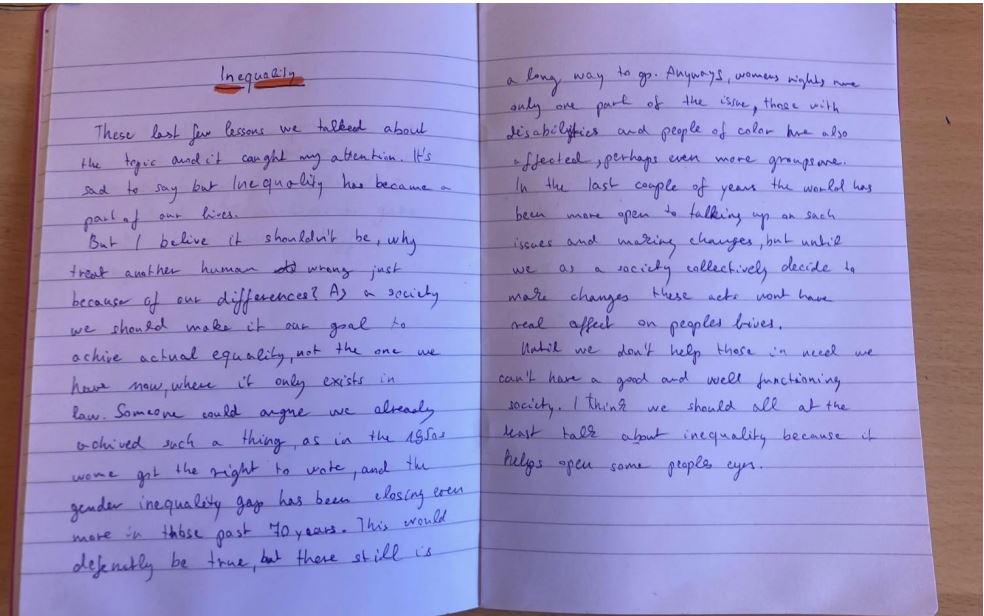 Inequality
These last few lessons we talked about
the topic and it caught my attention. It's
sad to say but Inequality has became a
part of our lives.
But I belive it shouldn't be, why
treat another human wrong just
because of our differences? As a society
we should make it our goal to
achive actual equality, not the one we
have now, where it only exists in
law. Someone could argue we already
achived such a thing, as in the 1950s
wome got the right to vote, and the
gender inequality gap has been closing even
more in those past 70 years. This would
defenetly be true, but there still is
a long way to go. Anyways, womens rights are
only one part of the issue, those with
disabilities and people of color are also
affected, perhaps even more groupsome.
In the last couple of years the world has
been more open to talking up on such
issues and making changes, but until
we as a society collectively decide to
make changes these acts wont have
real affect on peoples lives.
Until we don't help those in need we
can't have a good and well functioning
society. I think we should all at the
least talk about inequality because it
helps open some peoples eyes.